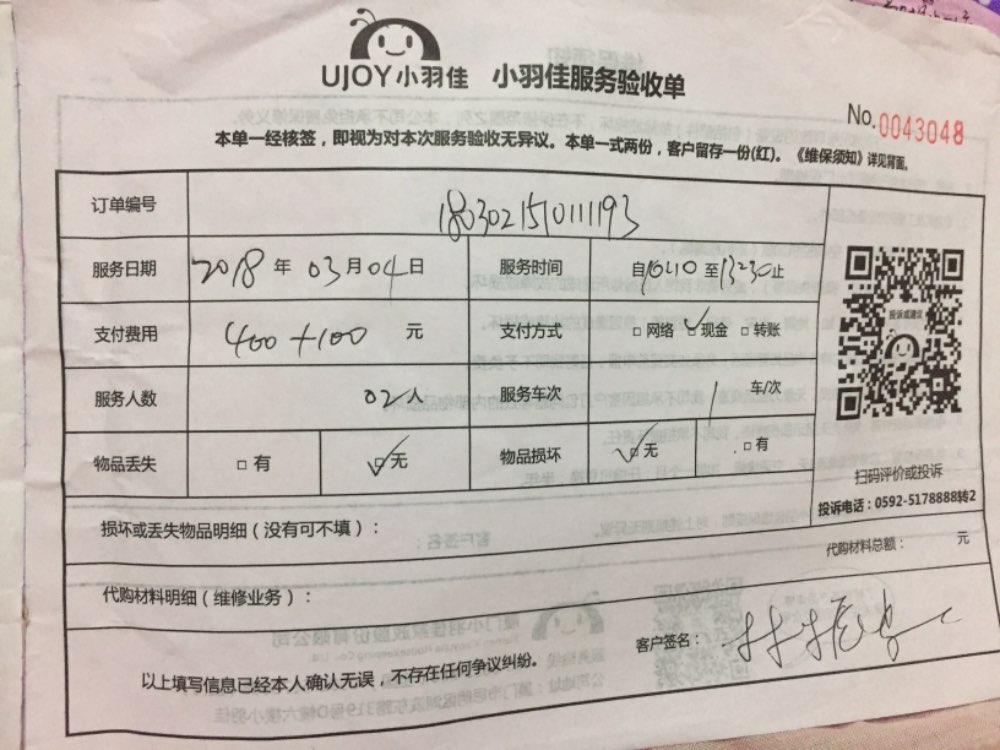 UJOY小羽佳 小羽佳服务验收单
No.0043048
本单一经核签，即视为对本次服务验收无异议。本单一式两份，客户留存一份(红)。《维保须知》详见背面。
订单编号 180302151011193
服务日期 2018年03月04日 服务时间 自10:10至13:30止
支付费用 400+100 元 支付方式 □网络 ☑现金 □转账
服务人数 02人 服务车次 1 车/次
物品丢失 □有 ☑无 物品损坏 ☑无 □有
投诉或建议
扫码评价或投诉
投诉电话：0592-5178888转2
损坏或丢失物品明细（没有可不填）：
代购材料总额： 元
代购材料明细（维修业务）：
客户签名：
以上填写信息已经本人确认无误，不存在任何争议纠纷。